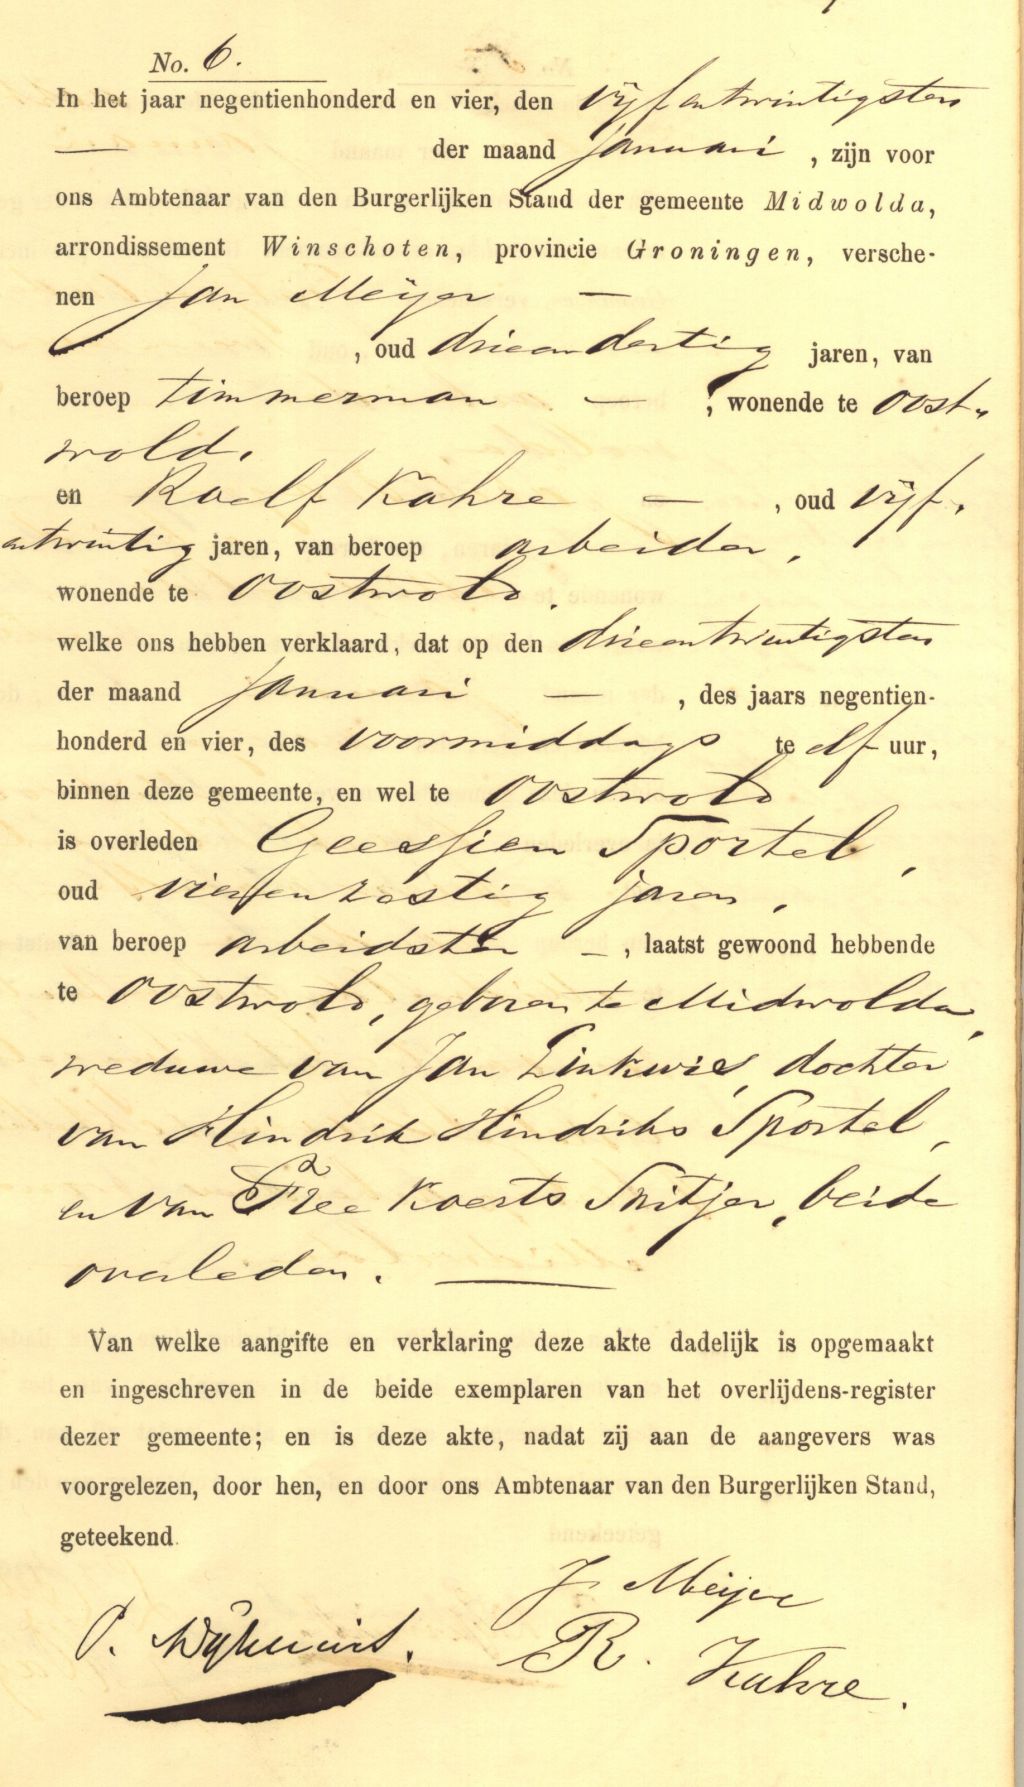 No. 6.
In het jaar negentienhonderd en vier, den vijfentwintigsten
der maand januari, zijn voor
ons Ambtenaar van den Burgerlijken Stand der gemeente Midwolda,
arrondissement Winschoten, provincie Groningen, versche-
nen Jan Meijer —
, oud drieendertig jaren, van
beroep timmerman — , wonende te Oost-
wold.
en Roelf Kahre — , oud vijf-
entwintig jaren, van beroep arbeider,
wonende te Oostwold.
welke ons hebben verklaard, dat op den drieentwintigsten
der maand januari — , des jaars negentien-
honderd en vier, des voormiddags te elf uur,
binnen deze gemeente, en wel te Oostwold
is overleden Geessien Sportel,
oud vierenzestig jaren,
van beroep arbeidster — , laatst gewoond hebbende
te Oostwold, geboren te Midwolda,
weduwe van Jan Linkwis, dochter
van Hindrik Hindriks Sportel,
en van Koerts Snitjer, beide
overleden. —
Van welke aangifte en verklaring deze akte dadelijk is opgemaakt
en ingeschreven in de beide exemplaren van het overlijdens-register
dezer gemeente; en is deze akte, nadat zij aan de aangevers was
voorgelezen, door hen, en door ons Ambtenaar van den Burgerlijken Stand,
geteekend.
J Meijer
R. Kahre.